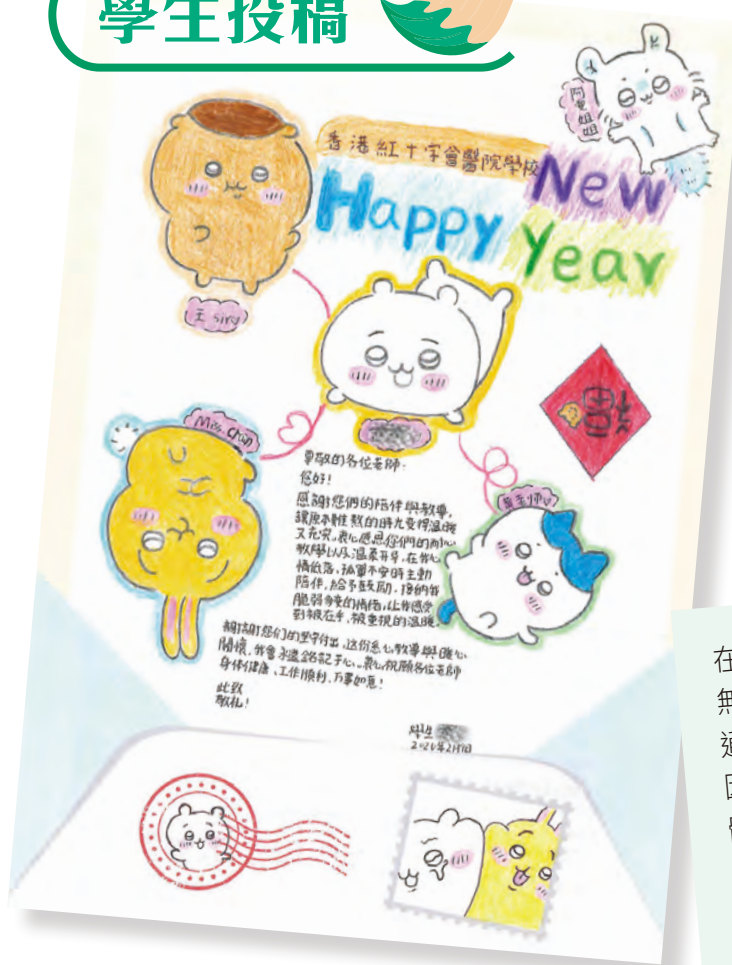 學生投稿
阿兔姐姐
香港紅十字會醫院學校
Happy New Year
王 sir
Miss Chan
尊敬的各位老師:
您好!
感謝您們的陪伴與教導,
讓原本難熬的時光變得溫暖
又充实。衷心感恩您們的耐心
教學以及溫柔开导,在我心
情低落、孤單不安時主動
陪伴,給予鼓励,接納我
脆弱多变的情绪,让我感受
到被在乎、被重視的溫暖。
謝謝您们的坚守付出,这份悉心教導與暖心
關懷,我會永遠銘記于心。衷心祝願各位老師
身体健康、工作順利、万事如意!
此致
敬礼!
學生
在
無